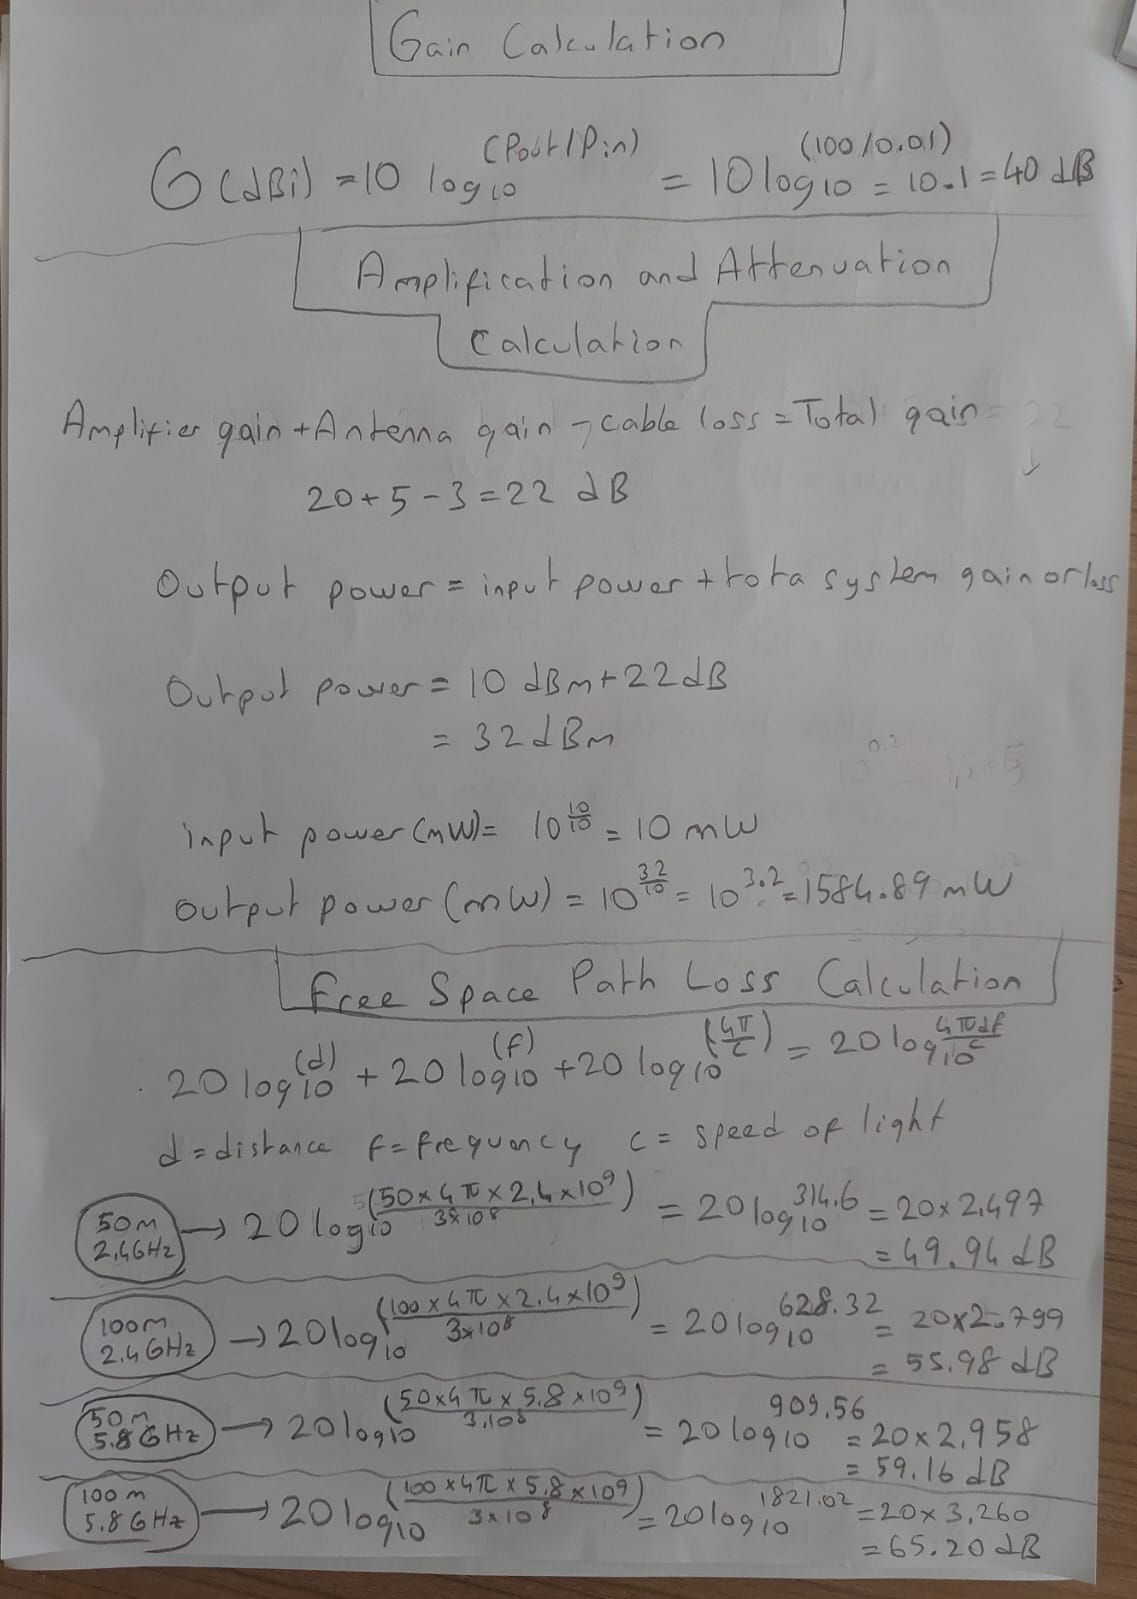 Gain Calculation
G(dBi) = 10 log10 (Pout/Pin) = 10 log10 (100/0.01) = 10.1 = 40 dB
Amplification and Attenuation
Calculation
Amplifier gain + Antenna gain - cable loss = Total gain = 22
20 + 5 - 3 = 22 dB
Output power = input power + tota system gain or loss
Output power = 10 dBm + 22 dB
= 32 dBm
10^0.2
input power (mW) = 10^(10/10) = 10 mW
output power (mW) = 10^(32/10) = 10^3.2 = 1584.89 mW
Free Space Path Loss Calculation
20 log10 (d) + 20 log10 (f) + 20 log10 (4π/c) = 20 log10 4πdf/c
d = distance f = frequency c = speed of light
50m 2.4GHz → 20 log10 (50 x 4π x 2.4 x 10^9 / 3x10^8) = 20 log10 314.6 = 20 x 2.497
= 49.94 dB
100m 2.4GHz → 20 log10 (100 x 4π x 2.4 x 10^9 / 3x10^8) = 20 log10 628.32 = 20x2.799
= 55.98 dB
50m 5.8GHz → 20 log10 (50x4π x 5.8 x 10^9 / 3.10^8) = 20 log10 909.56 = 20 x 2.958
= 59.16 dB
100m 5.8GHz → 20 log10 (100 x 4π x 5.8 x 10^9 / 3x10^8) = 20 log10 1821.02 = 20 x 3,260
= 65.20 dB